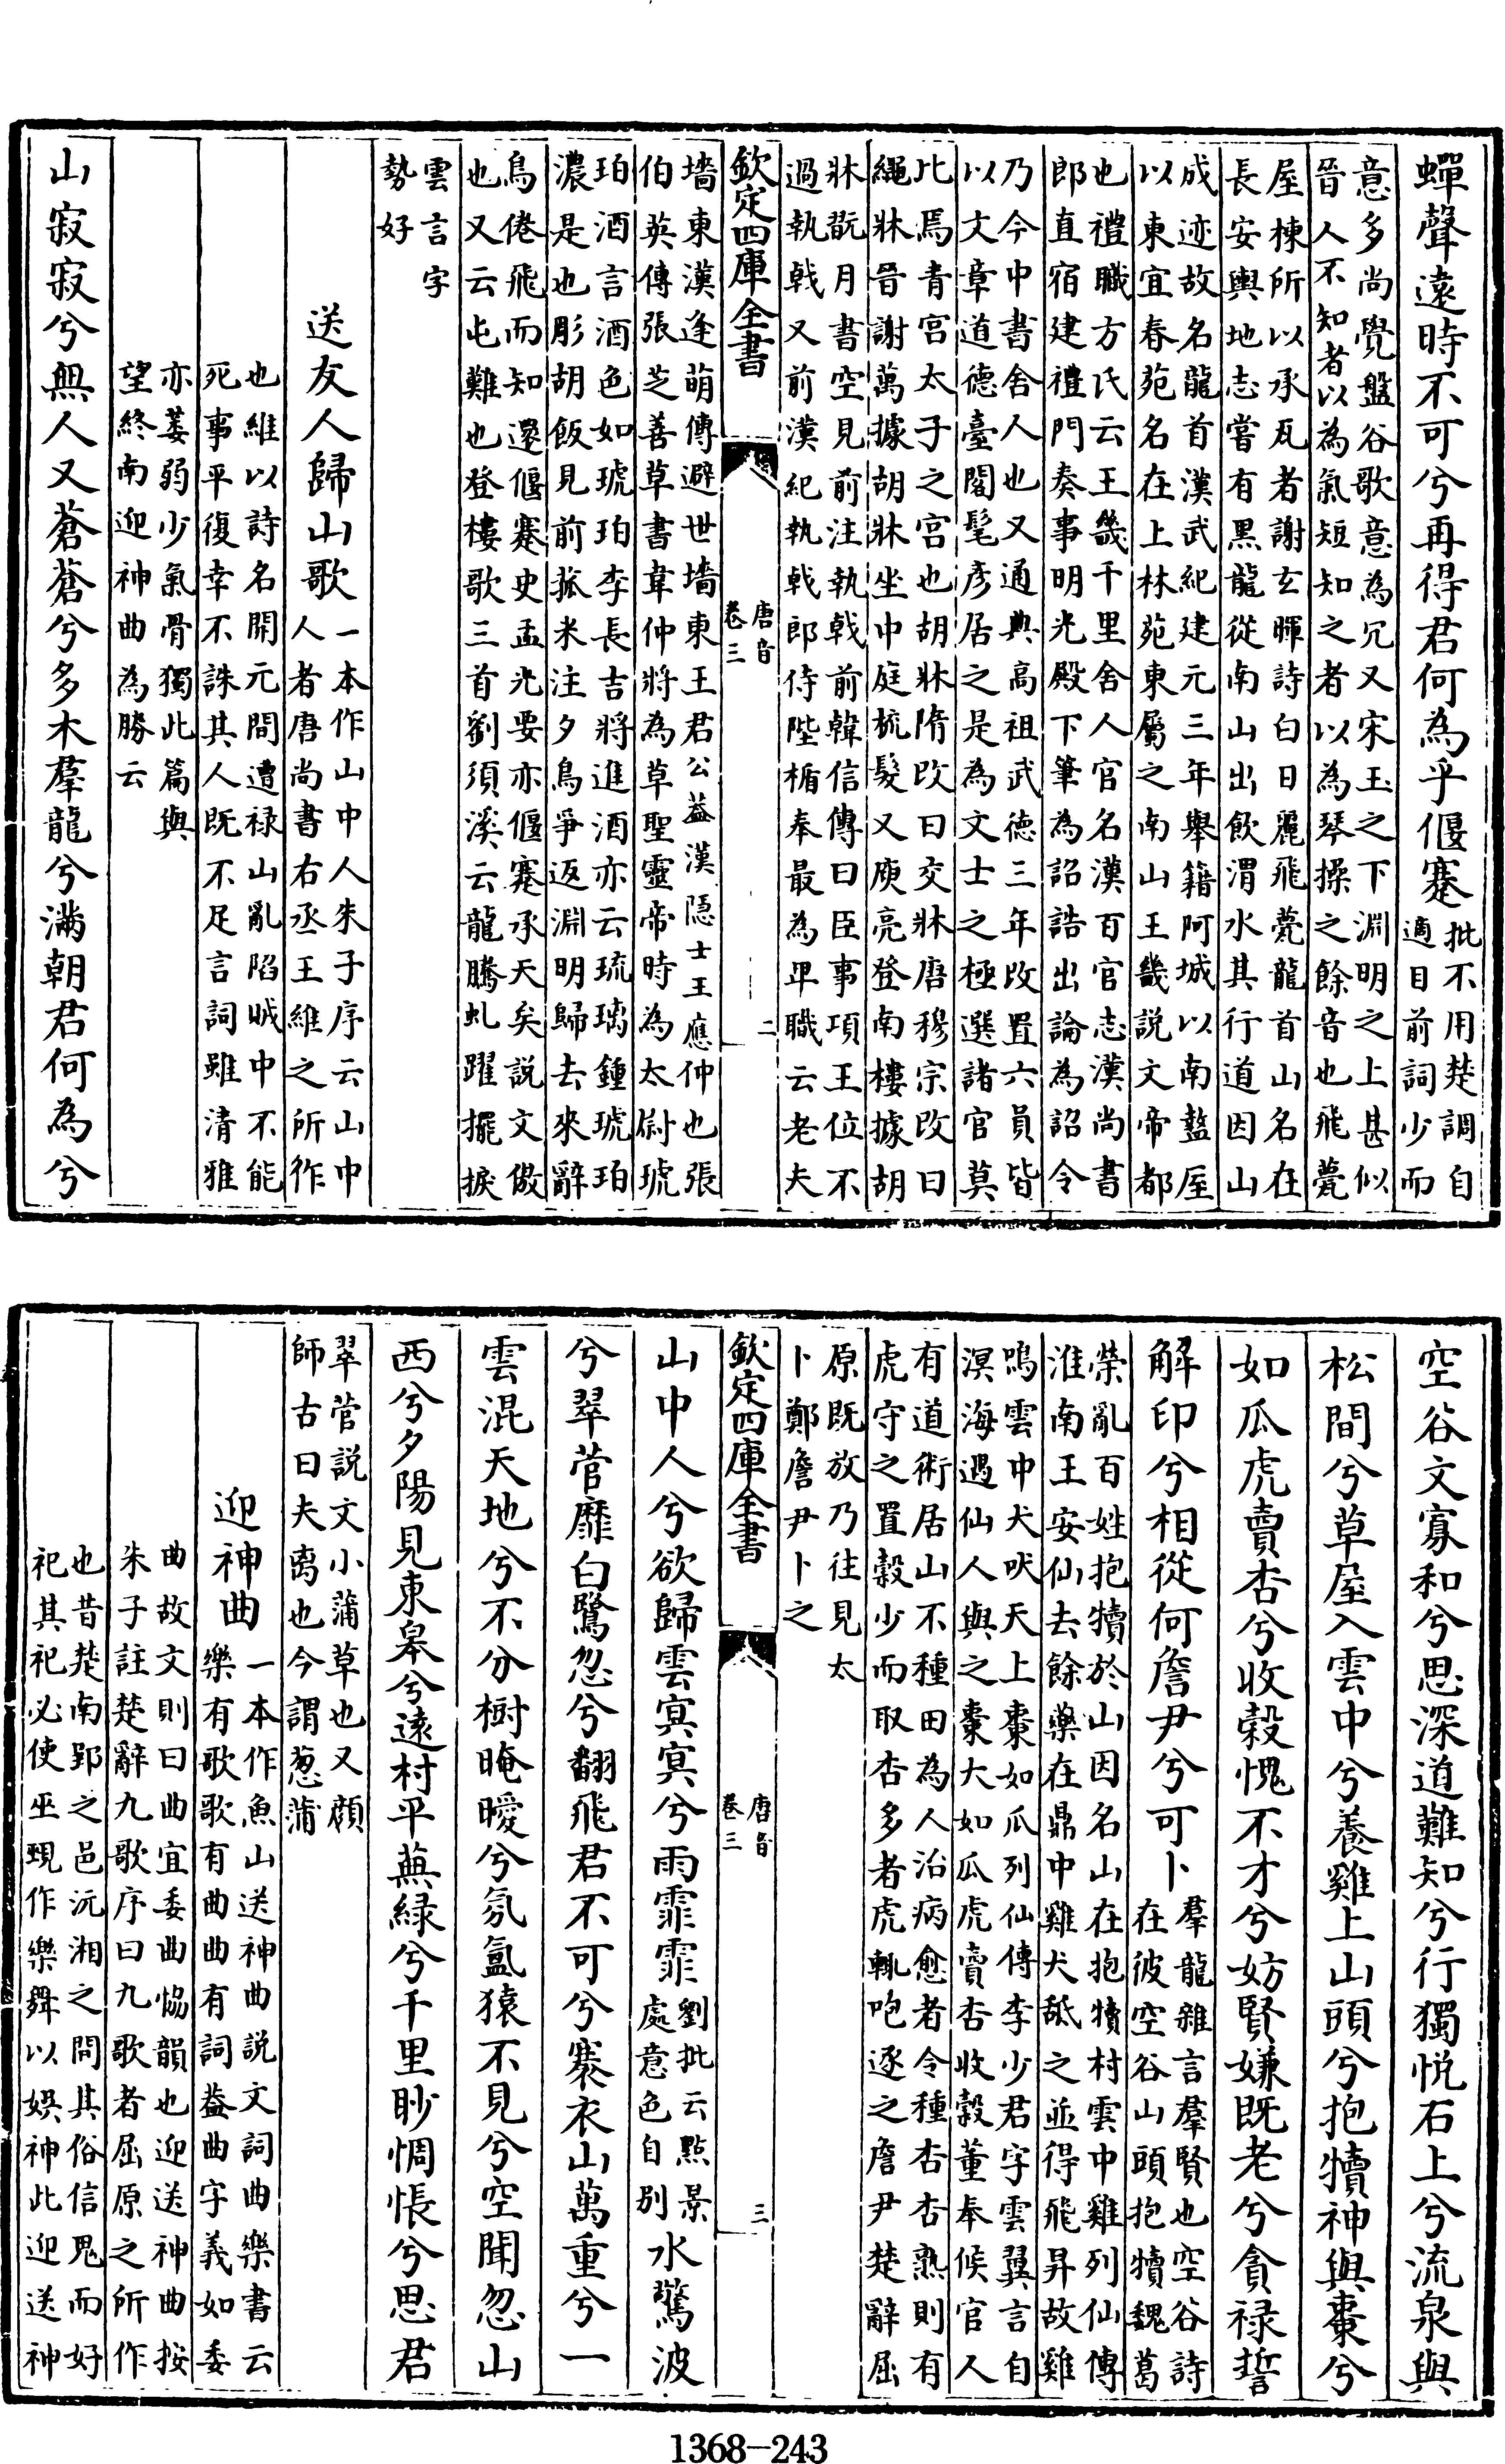 蟬聲遠時不可兮再得君何為乎偃蹇
批不用楚調自
適目前詞少而
意多尚覺盤谷歌意為冗又宋玉之下淵明之上甚似
晉人不知者以為氣短知之者以為琴操之餘音也飛甍
屋棟所以承瓦者謝玄暉詩白日麗飛甍龍首山名在
長安輿地志嘗有黑龍從南山出飲渭水其行道因山
成迹故名龍首漢武紀建元三年舉籍阿城以南盩屋
以東宜春苑名在上林苑東屬之南山王畿説文帝都
也禮職方氏云王畿千里舍人官名漢百官志漢尚書
郎直宿建禮門奏事明光殿下筆為詔誥出論為詔令
乃今中書舍人也又通典高祖武德三年改置六員皆
以文章道德臺閣髦彦居之是為文士之極選諸官莫
比焉青宮太子之宮也胡牀隋改曰交牀唐穆宗改曰
繩牀晉謝萬據胡牀坐中庭梳髮又庾亮登南樓據胡
牀翫月書空見前注執戟前韓信傳曰臣事項王位不
過執戟又前漢紀執戟郎侍陛楯奉最為卑職云老夫
欽定四庫全書
唐音
卷三
二
墻東漢逢萌傳避世墻東王君公葢漢隱士王應仲也張
伯英傳張芝善草書韋仲將為草聖靈帝時為太尉琥
珀酒言酒色如琥珀李長吉將進酒亦云琉璃鍾琥珀
濃是也彫胡飯見前菰米注夕鳥爭返淵明歸去來辭
鳥倦飛而知還偃蹇史孟光要亦偃蹇承天矣説文傲
也又云屯難也登樓歌三首劉須溪云龍騰虬躍擺捩
雲言字
勢好
送友人歸山歌
一本作山中人朱子序云山中
人者唐尚書右丞王維之所作
也維以詩名開元間遭禄山亂陷賊中不能
死事平復幸不誅其人既不足言詞雖清雅
亦萎弱少氣骨獨此篇與
望終南迎神曲為勝云
山寂寂兮無人又蒼蒼兮多木羣龍兮滿朝君何為兮
空谷文寡和兮思深道難知兮行獨悦石上兮流泉與
松間兮草屋入雲中兮養雞上山頭兮抱犢神與棗兮
如瓜虎賣杏兮收穀愧不才兮妨賢嫌既老兮貪禄誓
解印兮相從何詹尹兮可卜
羣龍雜言羣賢也空谷詩
在彼空谷山頭抱犢魏葛
榮亂百姓抱犢於山因名山在抱犢村雲中雞列仙傳
淮南王安仙去餘藥在鼎中雞犬舐之並得飛昇故雞
鳴雲中犬吠天上棗如瓜列仙傳李少君字雲翼言自
溟海遇仙人與之棗大如瓜虎賣杏收穀董奉候官人
有道術居山不種田為人治病愈者令種杏杏熟則有
虎守之置穀少而取杏多者虎輒咆逐之詹尹楚辭屈
原既放乃往見太
卜鄭詹尹卜之
欽定四庫全書
唐音
卷三
三
山中人兮欲歸雲冥冥兮雨霏霏
劉批云點景
處意色自别
水驚波
兮翠菅靡白鷺忽兮翻飛君不可兮褰衣山萬重兮一
雲混天地兮不分樹晻曖兮氛氳猿不見兮空聞忽山
西兮夕陽見東皋兮遠村平蕪緑兮千里眇惆悵兮思君
翠菅説文小蒲草也又顔
師古曰夫离也今謂葱蒲
迎神曲
一本作魚山送神曲説文詞曲樂書云
樂有歌歌有曲曲有詞葢曲字義如委
曲故文則曰曲宜委曲恊韻也迎送神曲按
朱子註楚辭九歌序曰九歌者屈原之所作
也昔楚南郢之邑沅湘之間其俗信鬼而好
祀其祀必使巫覡作樂舞以娯神此迎送神
1368-243